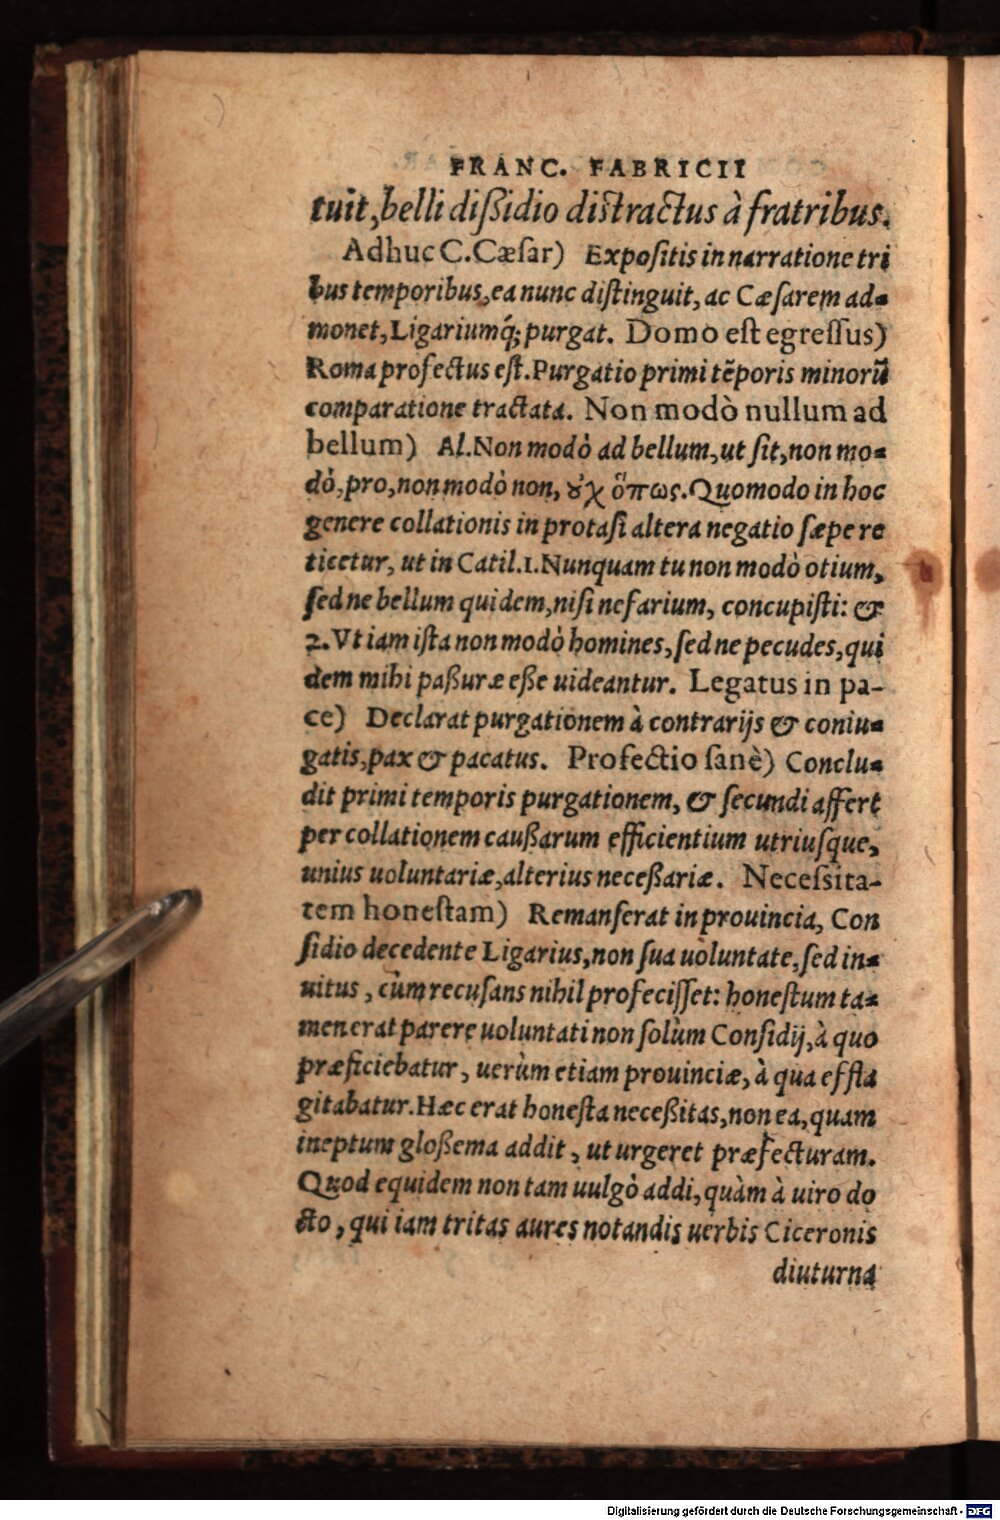 FRANC. FABRICII
tuit, belli dißidio distractus à fratribus.
Adhuc C. Cæsar) Expositis in narratione tri
bus temporibus, ea nunc distinguit, ac Cæsarem ad-
monet, Ligariumq́; purgat. Domo est egressus)
Roma profectus est. Purgatio primi tēporis minorū
comparatione tractata. Non modò nullum ad
bellum) Al. Non modò ad bellum, ut sit, non mo-
dò, pro, non modò non, ȣ̓χ ὅπως. Quomodo in hoc
genere collationis in protasi altera negatio sæpe re
ticetur, ut in Catil. 1. Nunquam tu non modò otium,
sed ne bellum quidem, nisi nefarium, concupisti: &
2. Vt iam ista non modò homines, sed ne pecudes, qui
dem mihi paßuræ eße uideantur. Legatus in pa-
ce) Declarat purgationem à contrarijs & coniu-
gatis, pax & pacatus. Profectio sanè) Conclu-
dit primi temporis purgationem, & secundi affert
per collationem caußarum efficientium utriusque,
unius uoluntariæ, alterius neceßariæ. Necessita-
tem honestam) Remanserat in prouincia, Con
sidio decedente Ligarius, non sua uoluntate, sed in-
uitus, cùm recusans nihil profecisset: honestum ta-
men erat parere uoluntati non solùm Considij, à quo
præficiebatur, uerùm etiam prouinciæ, à qua effla
gitabatur. Hæc erat honesta neceßitas, non ea, quam
ineptum gloßema addit, ut urgeret præfecturam.
Quod equidem non tam uulgò addi, quàm à uiro do
cto, qui iam tritas aures notandis uerbis Ciceronis
diuturna
Digitalisierung gefördert durch die Deutsche Forschungsgemeinschaft - DFG